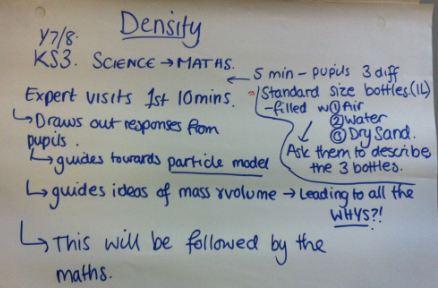 Density
Y7/8.
KS3. SCIENCE → MATHS.
← 5 min - pupils 3 diff
Standard size bottles (1L)
-filled w ① Air
② Water
③ Dry Sand.
Ask them to describe
the 3 bottles.
Expert visits 1st 10 mins.
↳ Draws out responses from
pupils.
↳ guides towards particle model
↳ guides ideas of mass & volume → Leading to all the
WHYS?!
↳ This will be followed by the
maths.